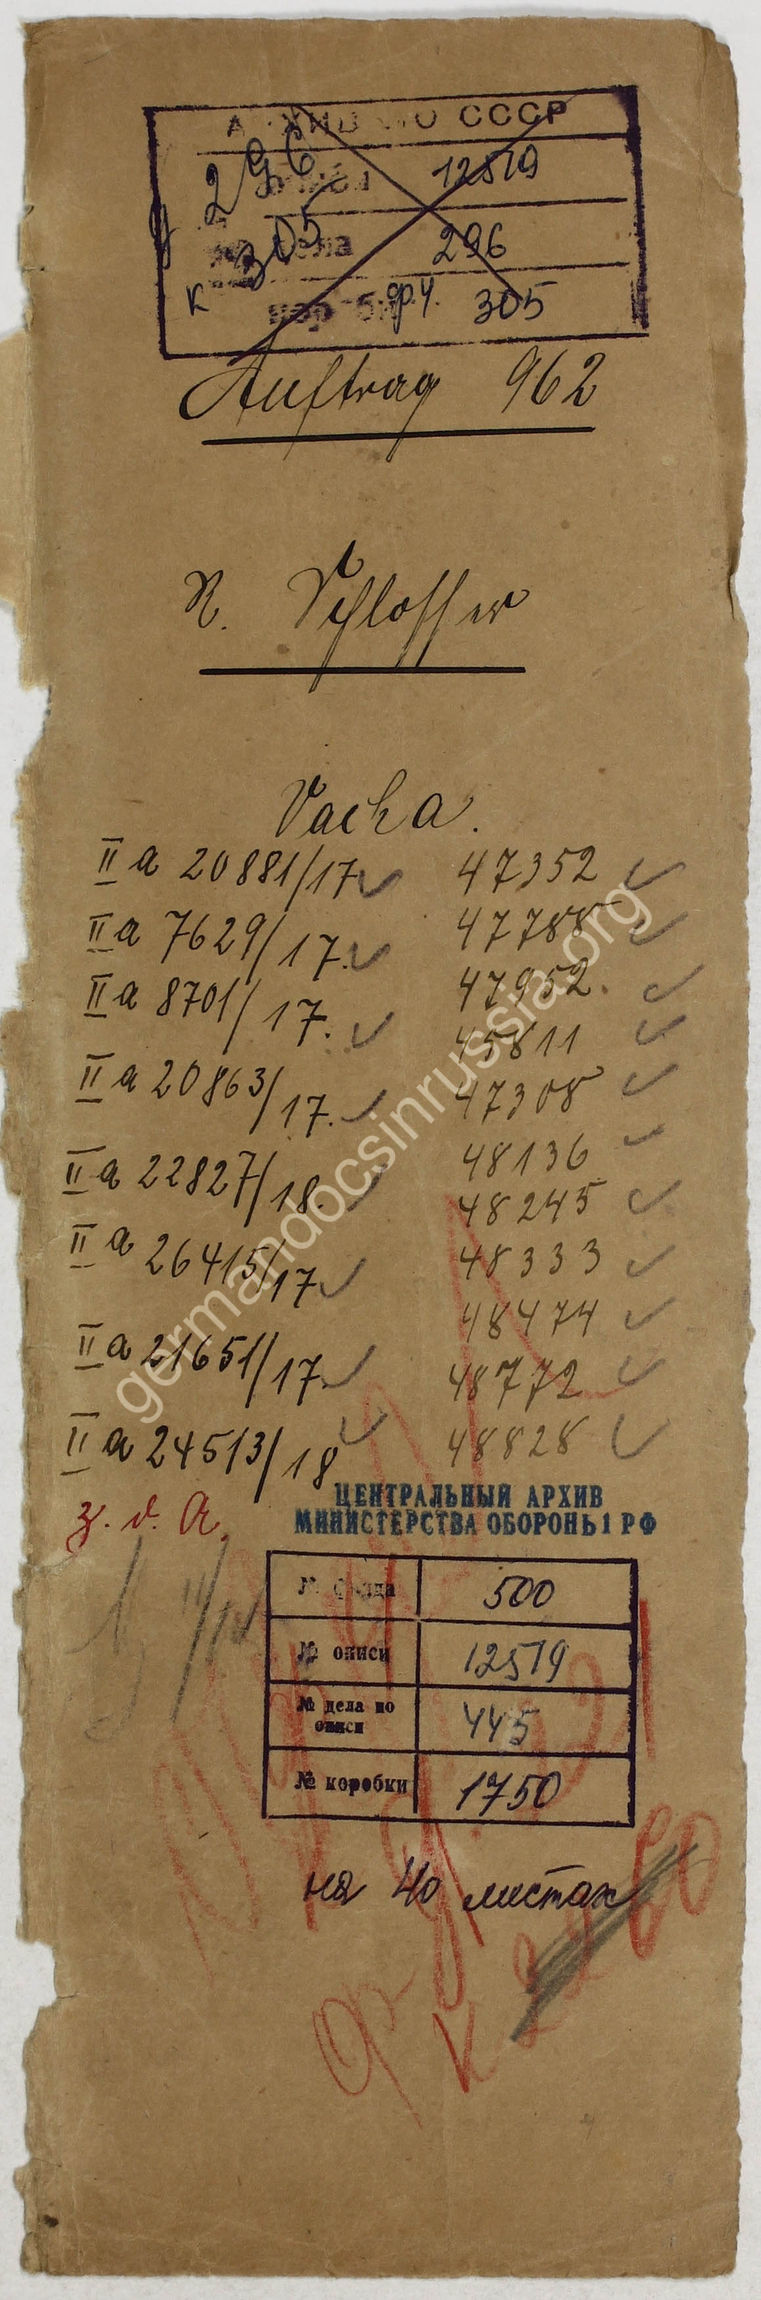 АРХИВ МО СССР
296
описи 12519
у
305
дела 296
к
короб др.ч. 305
Auftrag 962
N. Schlosser
Vacha.
II a 20881/17 ✓ 47352 ✓
II a 7629/17. ✓ 47788 ✓
II a 8701/17. ✓ 47952. ✓
45811 ✓
II a 20863/17. ✓ 47308 ✓
48136 ✓
II a 22827/18. ✓ 48245 ✓
II a 26415/17 ✓ 48333 ✓
48474 ✓
II a 21651/17. ✓ 48772 ✓
II a 24513/18 ✓ 48828 ✓
z. d. A.
ЦЕНТРАЛЬНЫЙ АРХИВ
МИНИСТЕРСТВА ОБОРОНЫ РФ
№ фонда 500
№ описи 12519
№ дела по описи 445
№ коробки 1750
на 40 листах
germandocsinrussia.org